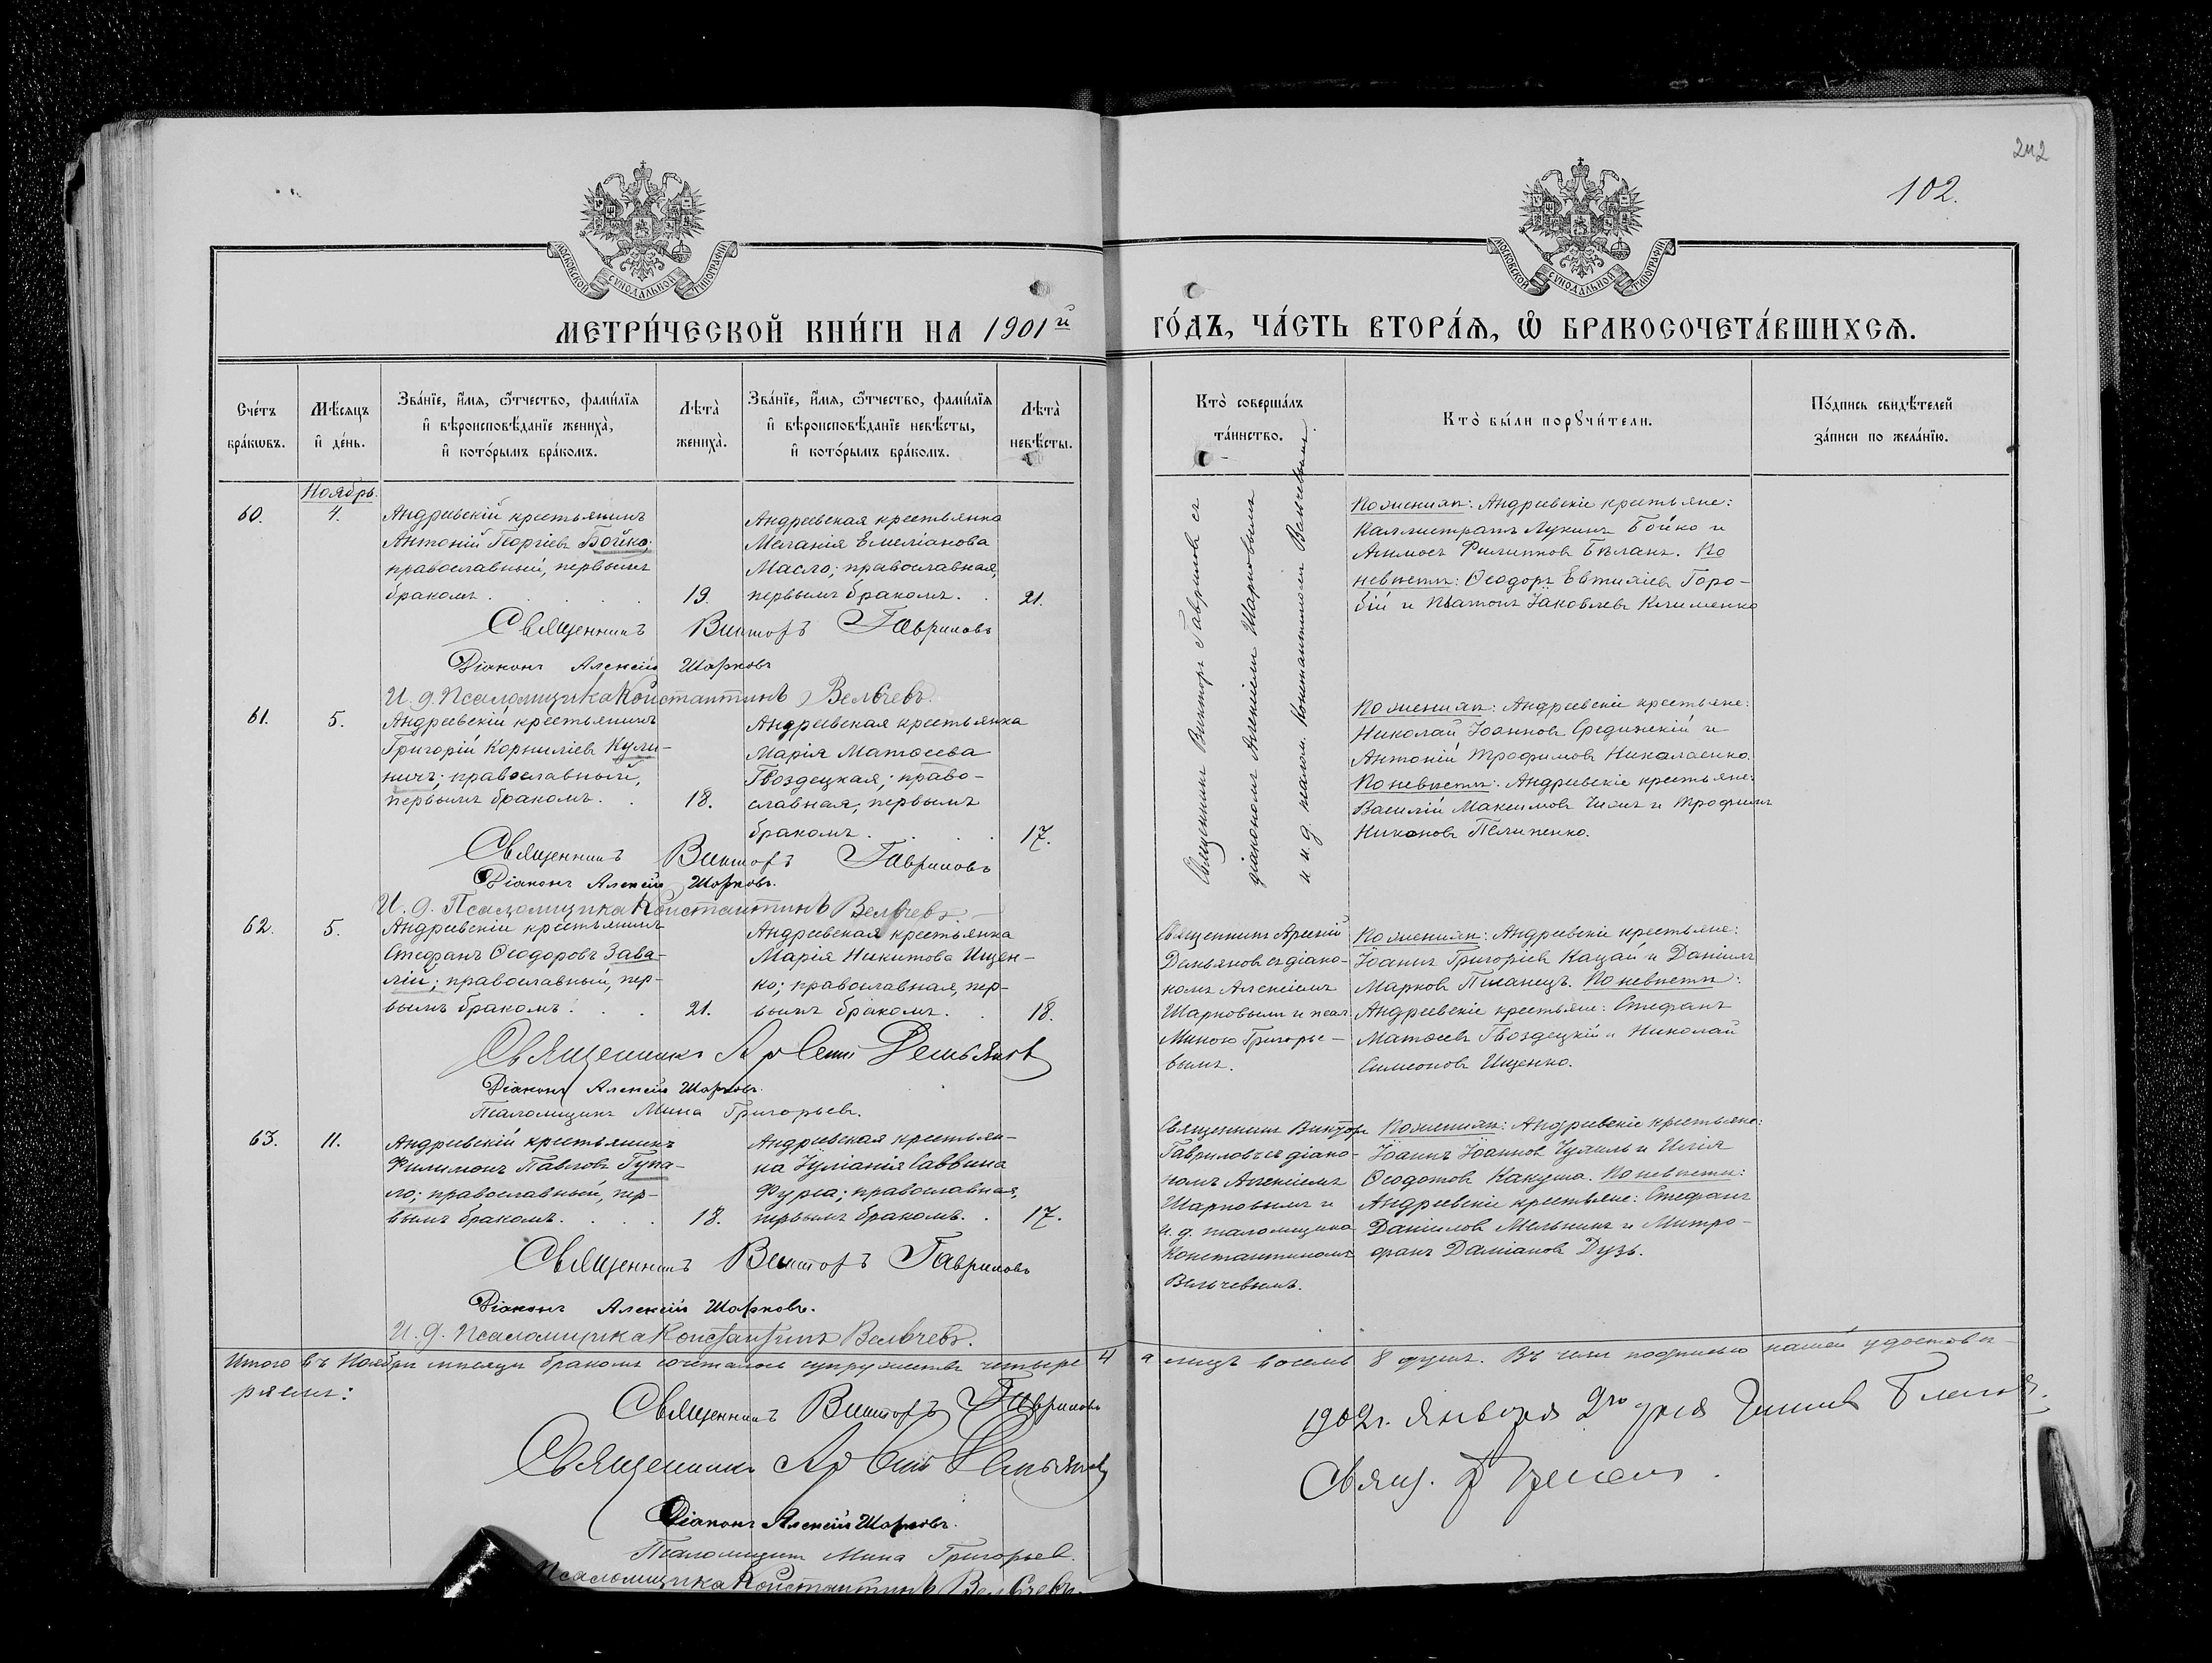 242
102.
МОСКОВСКОЙ СѴНОДАЛЬНОЙ ТИПОГРАФІИ
МОСКОВСКОЙ СѴНОДАЛЬНОЙ ТИПОГРАФІИ
МЕТРИ́ЧЕСКОЙ КНИ́ГИ НА 1901й
ГО́ДЪ, ЧА́СТЬ ВТОРА́Я, Ѽ БРАКОСОЧЕТА́ВШИХСЯ.
Сче́тъ
бра́кωвъ.
Мѣ́сяцъ
и҆ де́нь.
Зва́нїе, и҆́мя, ѻ҆́тчество, фами́лїя
и҆ вѣроисповѣ́данїе жениха̀,
и҆ кото́рымъ бра́комъ.
Лѣта̀
жениха̀.
Зва́нїе, и҆́мя, ѻ҆́тчество, фами́лїя
и҆ вѣроисповѣ́данїе невѣ́сты,
и҆ кото́рымъ бра́комъ.
Лѣта̀
невѣ́сты.
Кто̀ соверша́лъ
та́инство.
Кто̀ бы́ли порꙋчи́тели.
По́дпись свидѣ́телей
за́писи по жела́нїю.
Ноябрь.
60.
4.
Андреевскій крестьянинъ
Антоній Георгіевъ Бойко;
православный, первымъ
бракомъ.
19.
Андреевская крестьянка
Меланія Емеліанова
Масло; православная,
первымъ бракомъ.
21.
Священникъ Викторъ Гавриловъ съ
діакономъ Алексіемъ Шарковымъ
и и. д. псалом. Константиномъ Вельчевымъ.
По женихѣ: Андреевскіе крестьяне:
Каллистратъ Лукинъ Бойко и
Филипповъ Бѣланъ. По
невѣстѣ: Ѳеодоръ Евтихіевъ Горо-
бій и Платонъ Іаковлевъ Клименко
Священникъ Викторъ Гавриловъ
Діаконъ Алексій Шарковъ
И. д. Псаломщика Константинъ Вельчевъ.
61.
5.
Андреевскій крестьянинъ
Григорій Корниліевъ Кули-
ничъ; православный,
первымъ бракомъ.
18.
Андреевская крестьянка
Марія Матѳеева
Гвоздецкая; право-
славная, первымъ
бракомъ.
17.
По женихѣ: Андреевскіе крестьяне:
Николай Іоанновъ и
Антоній Трофимовъ Николаенко.
По невѣстѣ: Андреевскіе крестьяне:
Василій Максимовъ и Трофимъ
Никоновъ Пелипенко.
Священникъ Викторъ Гавриловъ
Діаконъ Алексій Шарковъ.
И. д. Псаломщика Константинъ Вельчевъ.
62.
5.
Андреевскій крестьянинъ
Стефанъ Ѳеодоровъ Зава-
лій; православный, пер-
вымъ бракомъ.
21.
Андреевская крестьянка
Марія Никитова Ищен-
ко; православная, пер-
вымъ бракомъ.
18.
Священникъ Арсеній
Демьяновъ съ діако-
номъ Алексіемъ
Шарковымъ и псал.
Миною Григорье-
вымъ.
По женихѣ: Андреевскіе крестьяне:
Іоаннъ Григоріевъ Кацай и Даніилъ
Марковъ. По невѣстѣ:
Андреевскіе крестьяне: Стефанъ
Матѳеевъ Гвоздецкій и Николай
Симеоновъ Ищенко.
Священникъ Арсеній Демьяновъ
Діаконъ Алексій Шарковъ.
Псаломщикъ Мина Григорьевъ.
63.
11.
Андреевскій крестьянинъ
Филимонъ Павловъ Гупа-
ло; православный, пер-
вымъ бракомъ.
18.
Андреевская крестьян-
ка Іуліанія Саввина
Фурса; православная,
первымъ бракомъ.
17.
Священникъ Викторъ
Гавриловъ съ діако-
номъ Алексіемъ
Шарковымъ и
и. д. псаломщика
Константиномъ
Вельчевымъ.
По женихѣ: Андреевскіе крестьяне:
Іоаннъ Іоанновъ и Илія
Ѳеодотовъ Какуша. По невѣстѣ:
Андреевскіе крестьяне: Стефанъ
Даніиловъ Мельникъ и Митро-
фанъ Даміановъ Дузь.
Священникъ Викторъ Гавриловъ
Діаконъ Алексій Шарковъ.
И. д. Псаломщика Константинъ Вельчевъ.
Итого въ Ноябрѣ мѣсяцѣ бракомъ сочеталось супружествъ четыре 4 а лицъ восемь 8 душъ. Въ чемъ подписью нашей удостовѣ-
ряемъ:
Священникъ Викторъ Гавриловъ
Священникъ Арсеній Демьяновъ
Діаконъ Алексій Шарковъ.
Псаломщикъ Мина Григорьевъ.
Псаломщика Константинъ Вельчевъ.
1902 г. Января 2го дня
Свящ.